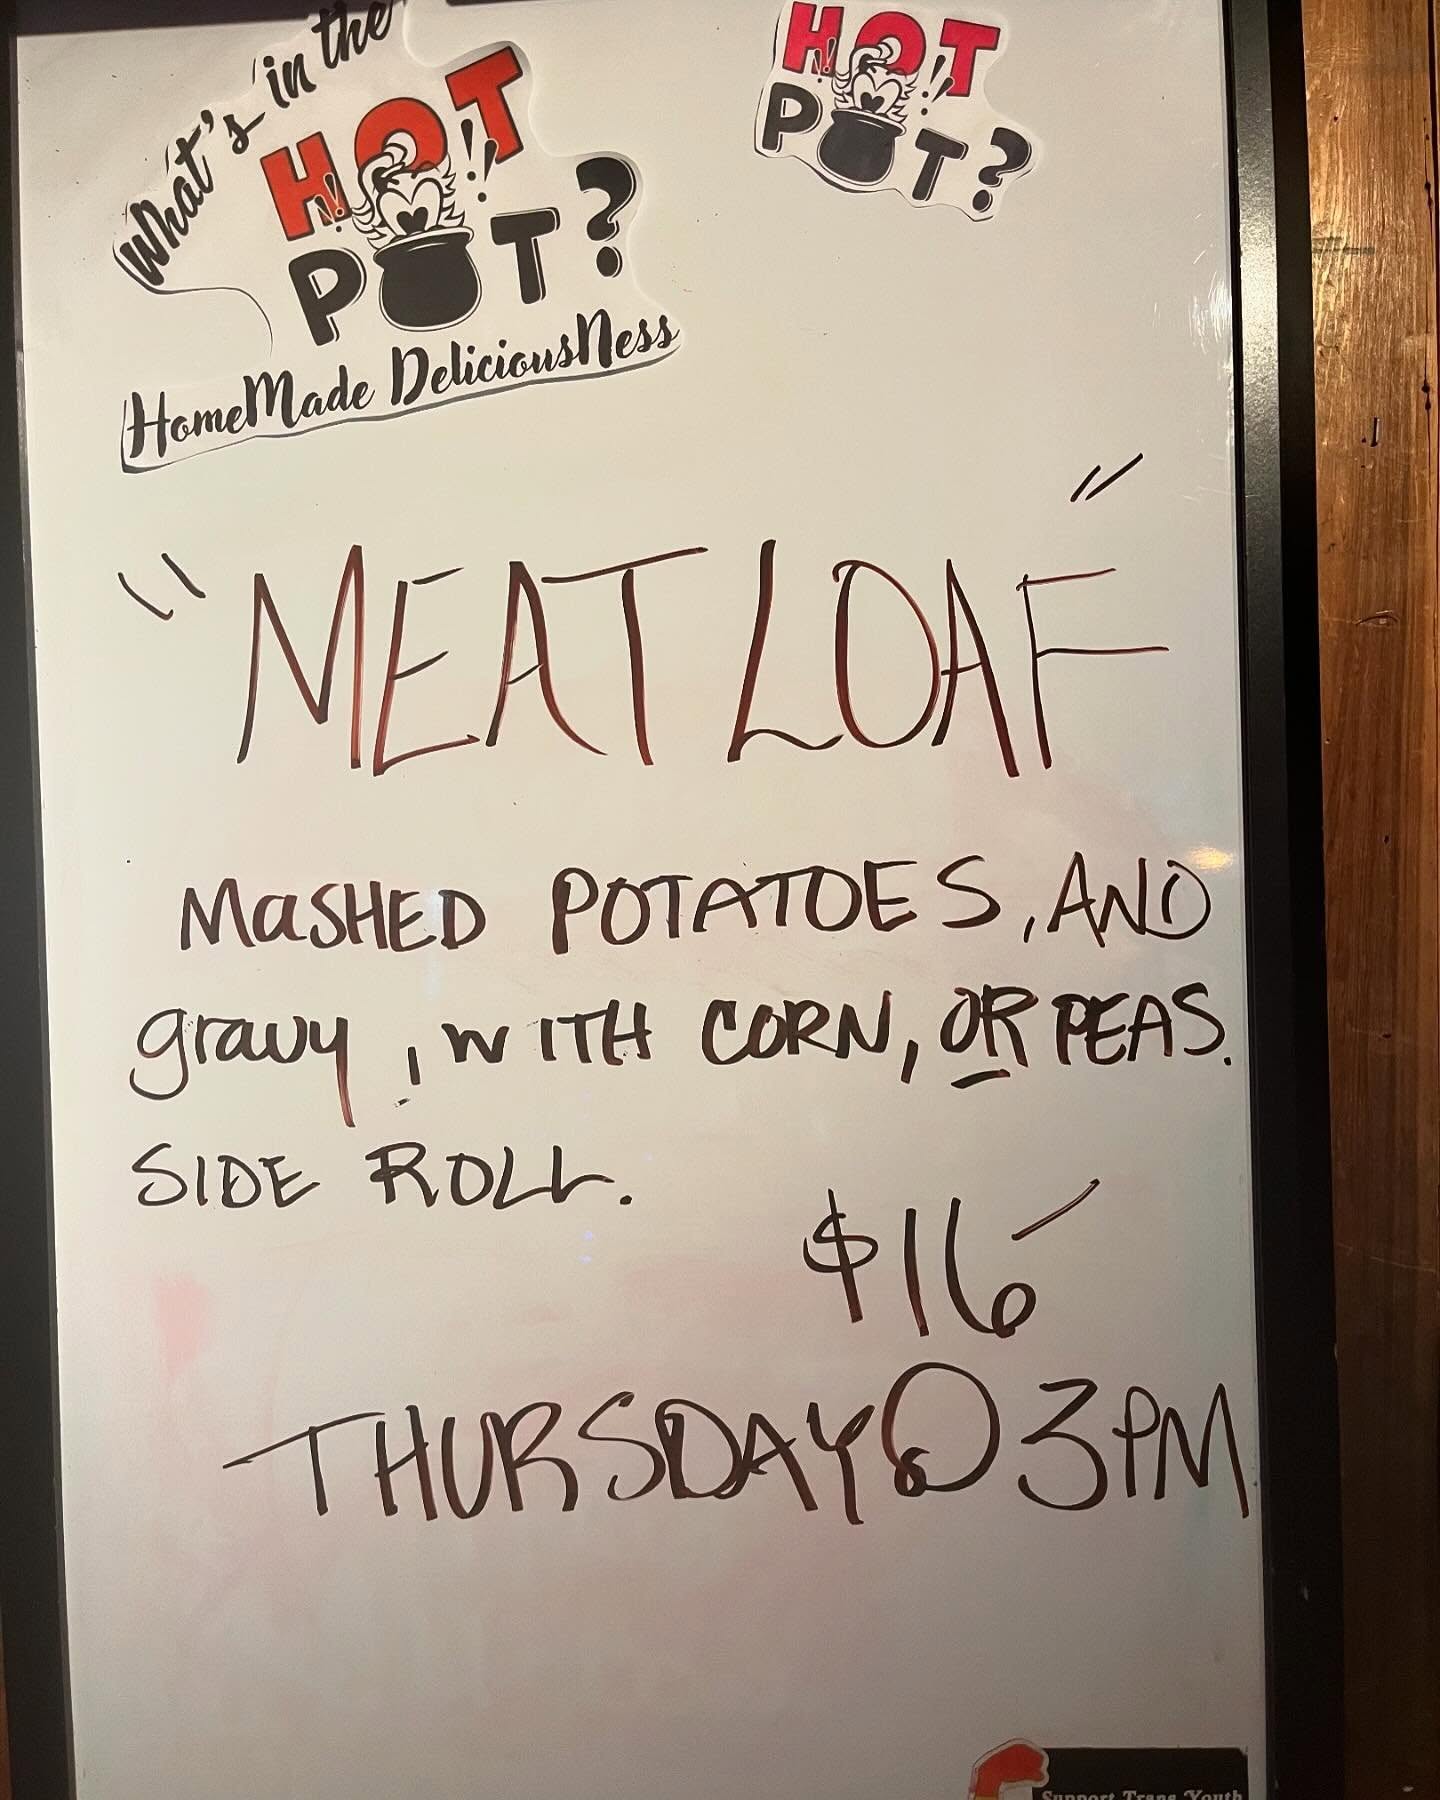 What's in the
HOT
POT?
HomeMade DeliciousNess
HOT
POT?
"MEATLOAF"
MaSHED POTATOES, AND
gravy, WITH CORN, OR PEAS.
SIDE ROLL.
$16
THURSDAY@3PM
Support Trans Youth